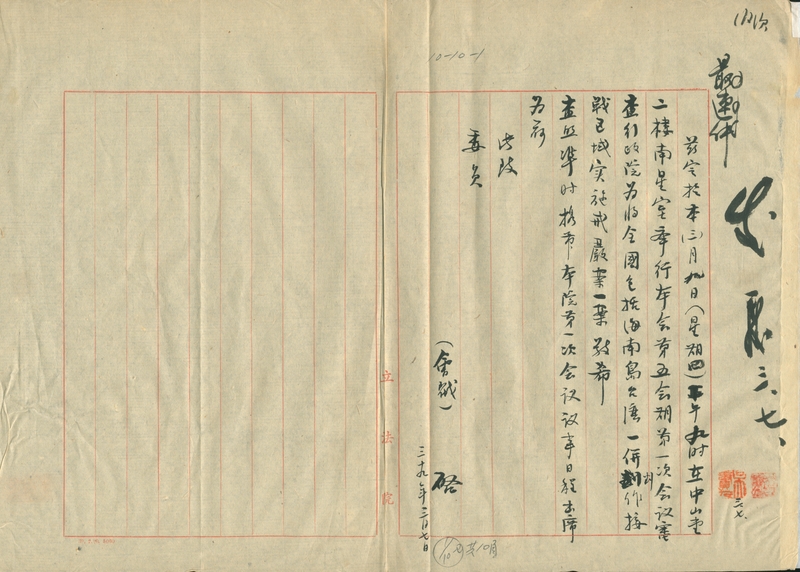 最速件
發 三、七、
茲定於本(三)月九日(星期四)上午九時在中山堂
二樓南星室舉行本会第五会期第一次会议審
查行政院为将全國包括海南島台灣一併劃作接
戰區域實施戒嚴案一案敬希
查照準时携带本院第一次会议议事日程出席
为荷
此致
委員
(會戳) 啓
三十九年三月七日
立法院
10-10-1